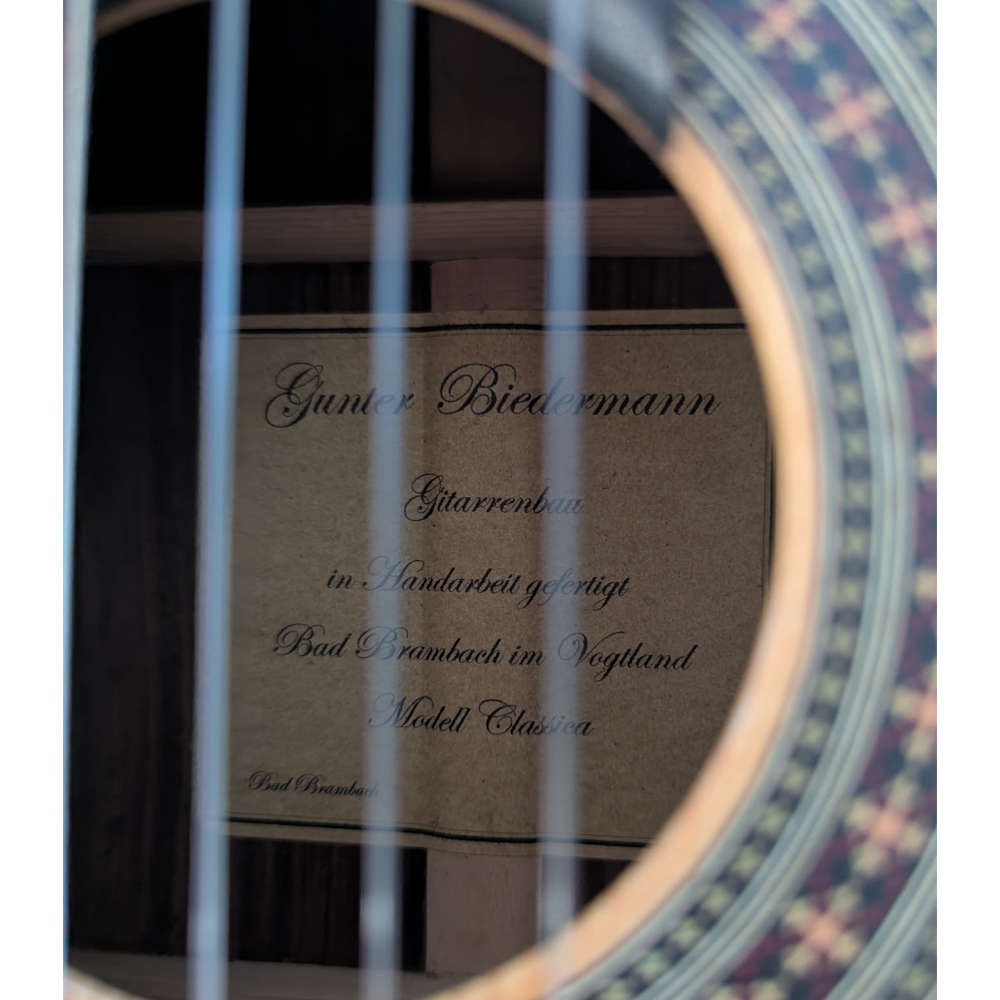 Gunter Biedermann
Gitarrenbau
in Handarbeit gefertigt
Bad Brambach im Vogtland
Modell Classica
Bad Brambach